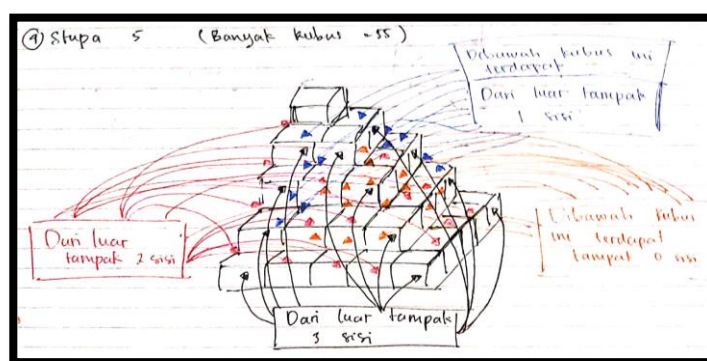 ④ Stupa 5 (Banyak kubus = 55)
Dibawah kubus ini
terdapat
Dari luar tampak
1 sisi
Dari luar
tampak 2 sisi
Dibawah kubus
ini terdapat
tampak 0 sisi
Dari luar tampak
3 sisi